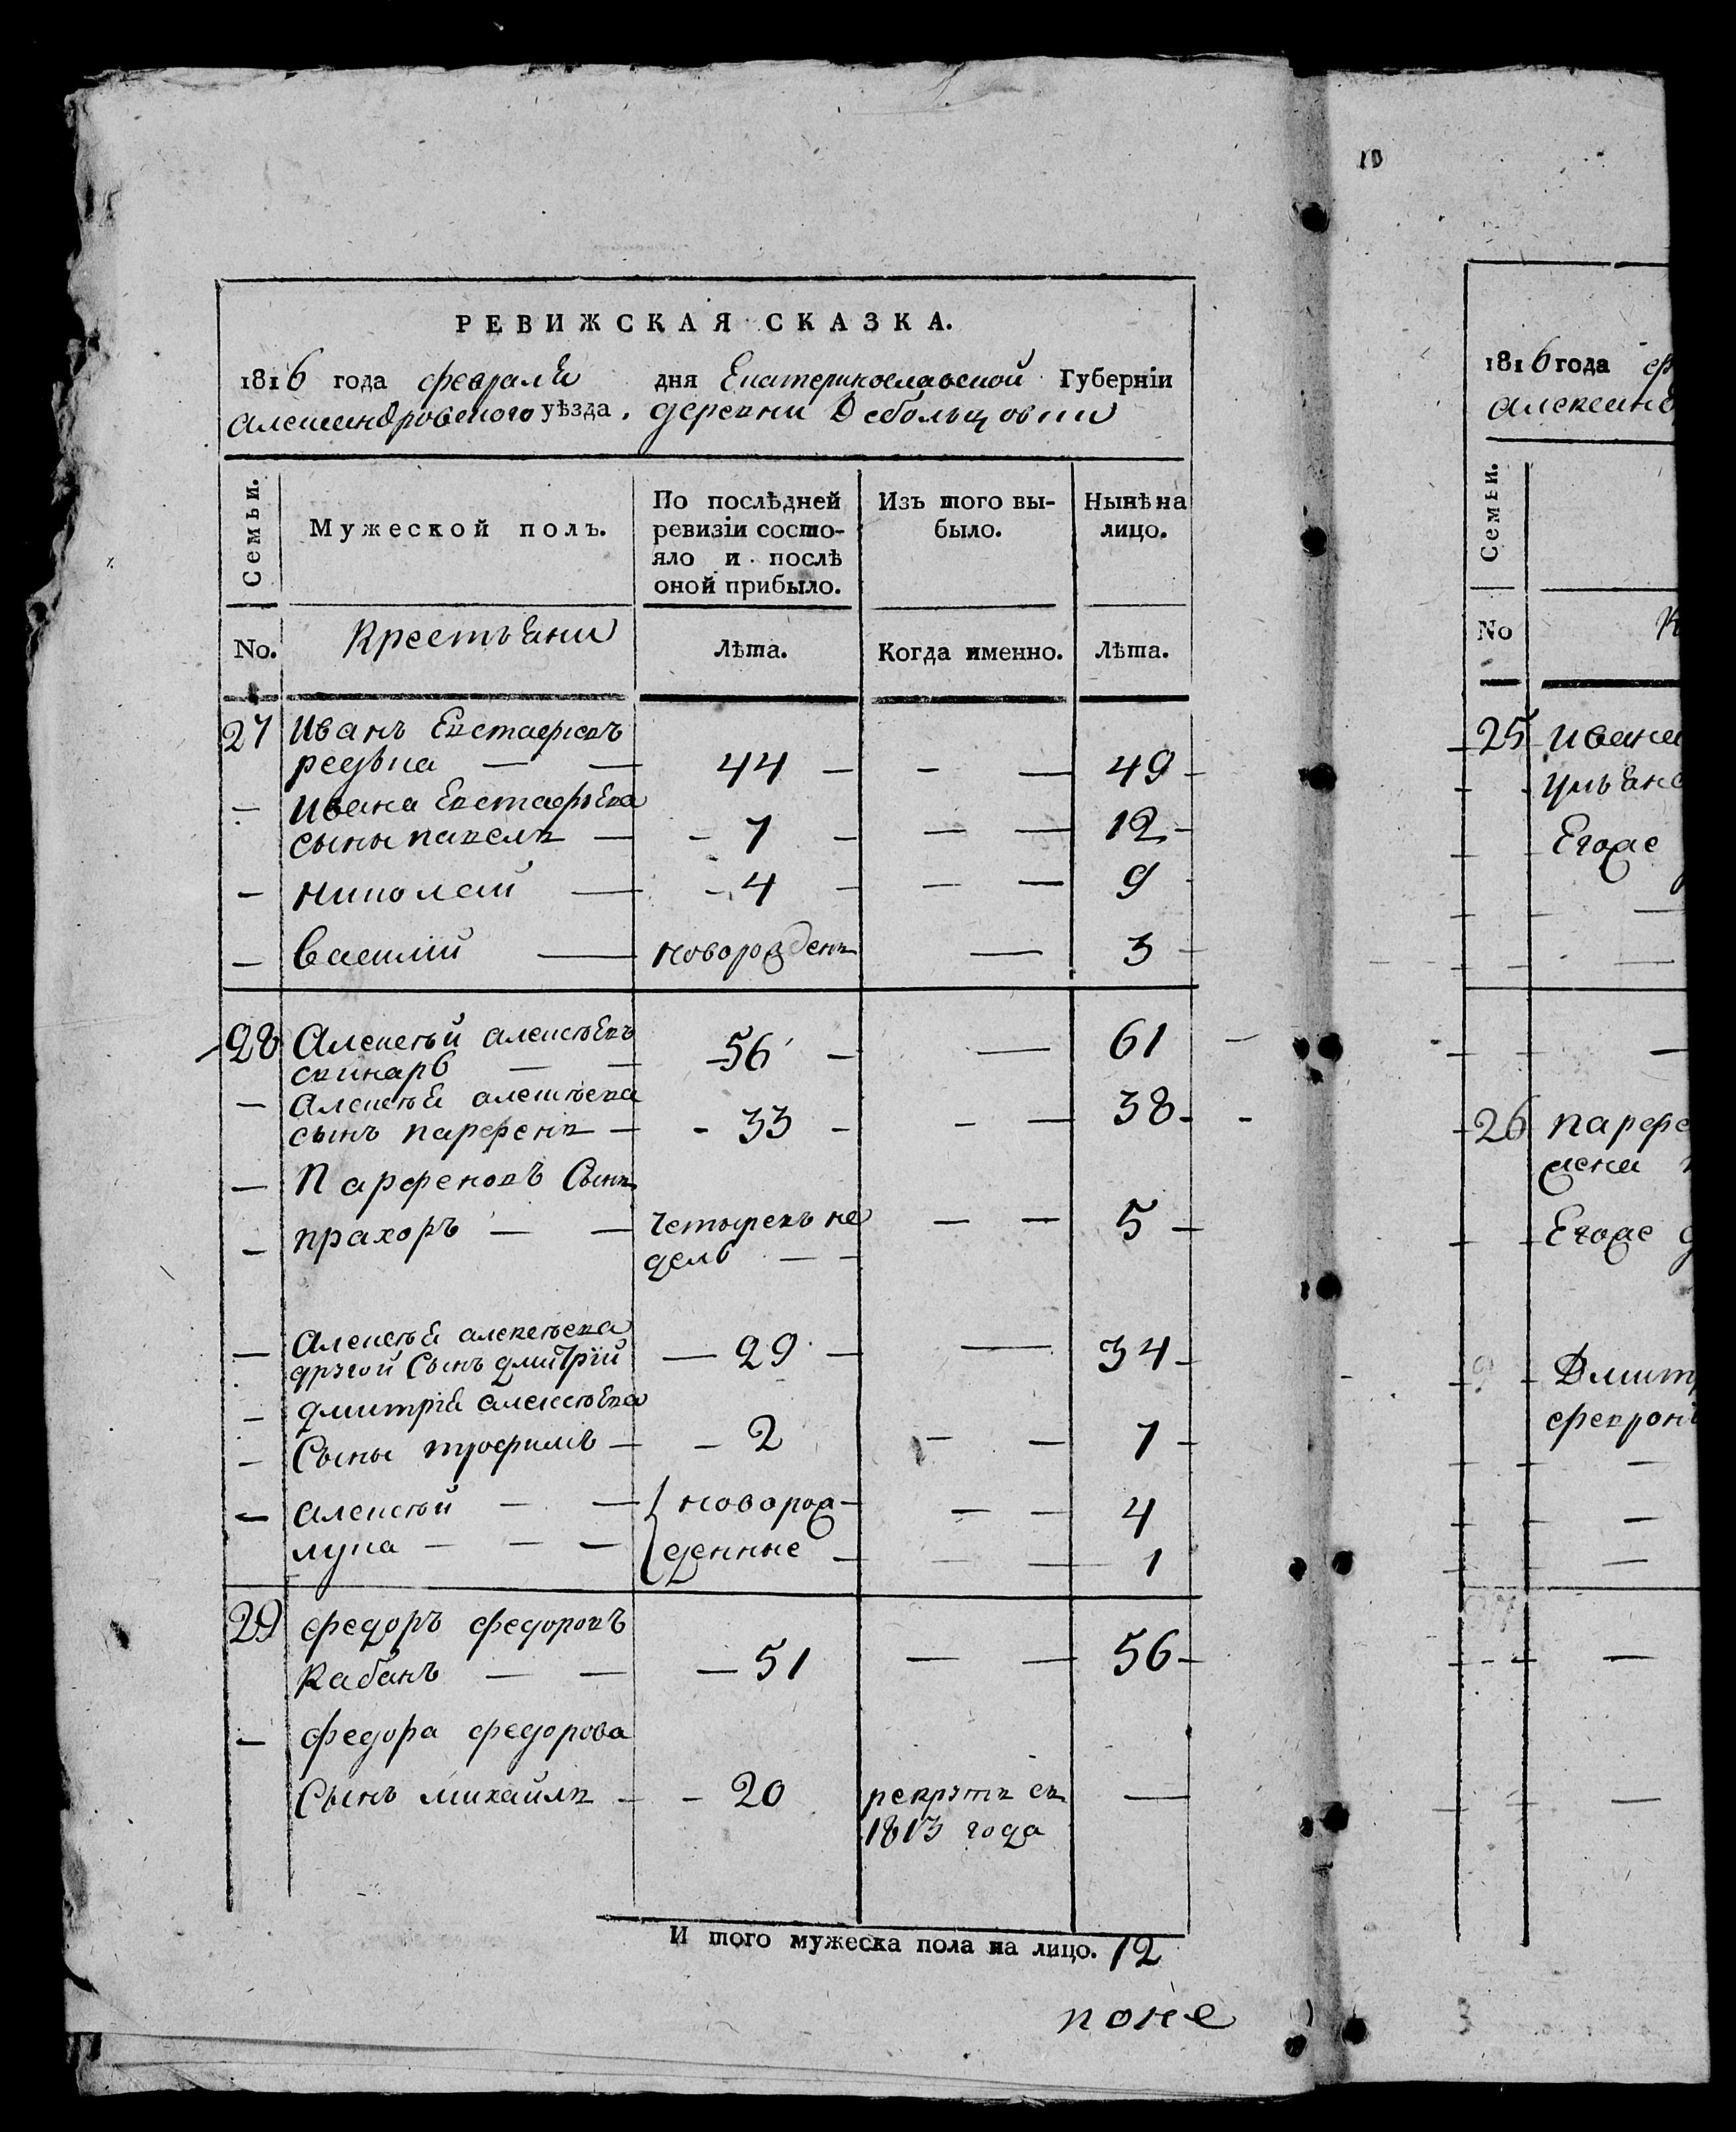 РЕВИЖСКАЯ СКАЗКА.
1816 года февраля дня Екатеринославской Губерніи
Александровского уѣзда. деревни Дебольцовки
Семьи.
Мужеской полъ.
По послѣдней
ревизіи состо-
яло и послѣ
оной прибыло.
Изъ того вы-
было.
Нынѣ на
лицо.
No.
Крестьяни
Лѣта.
Когда именно.
Лѣта.
27 Иванъ Евстафьевъ
редька — — 44 — — — 49
— Ивана Евстафьева
сыны павелъ — 7 — — — 12
— николай — 4 — — — 9
— василій — новорожденъ — 3
28 Алексѣй алексѣевъ
свинарь — — 56 — — 61
— Алексѣя алексѣева
сынъ парфенъ — 33 — — — 38
— Парфеновъ Сынъ
— прахоръ — — четырехъ не — — 5
дель — —
— Алексѣя алексѣева
другой Сынъ дмитрій — 29 — — 34
— дмитрія алексѣева
— Сыны трофимъ — 2 — — 7
— алексѣй — — новорож- — — 4
лука — — — денные — — — 1
29 федоръ федоровъ
Кабанъ — — 51 — — 56
— федора федорова
Сынъ михайлъ — 20 рекрутъ съ —
1813 года
И того мужеска пола на лицо. 12
10
1816 года
Семьи.
No
25 ивана
Егоже
26
Егоже